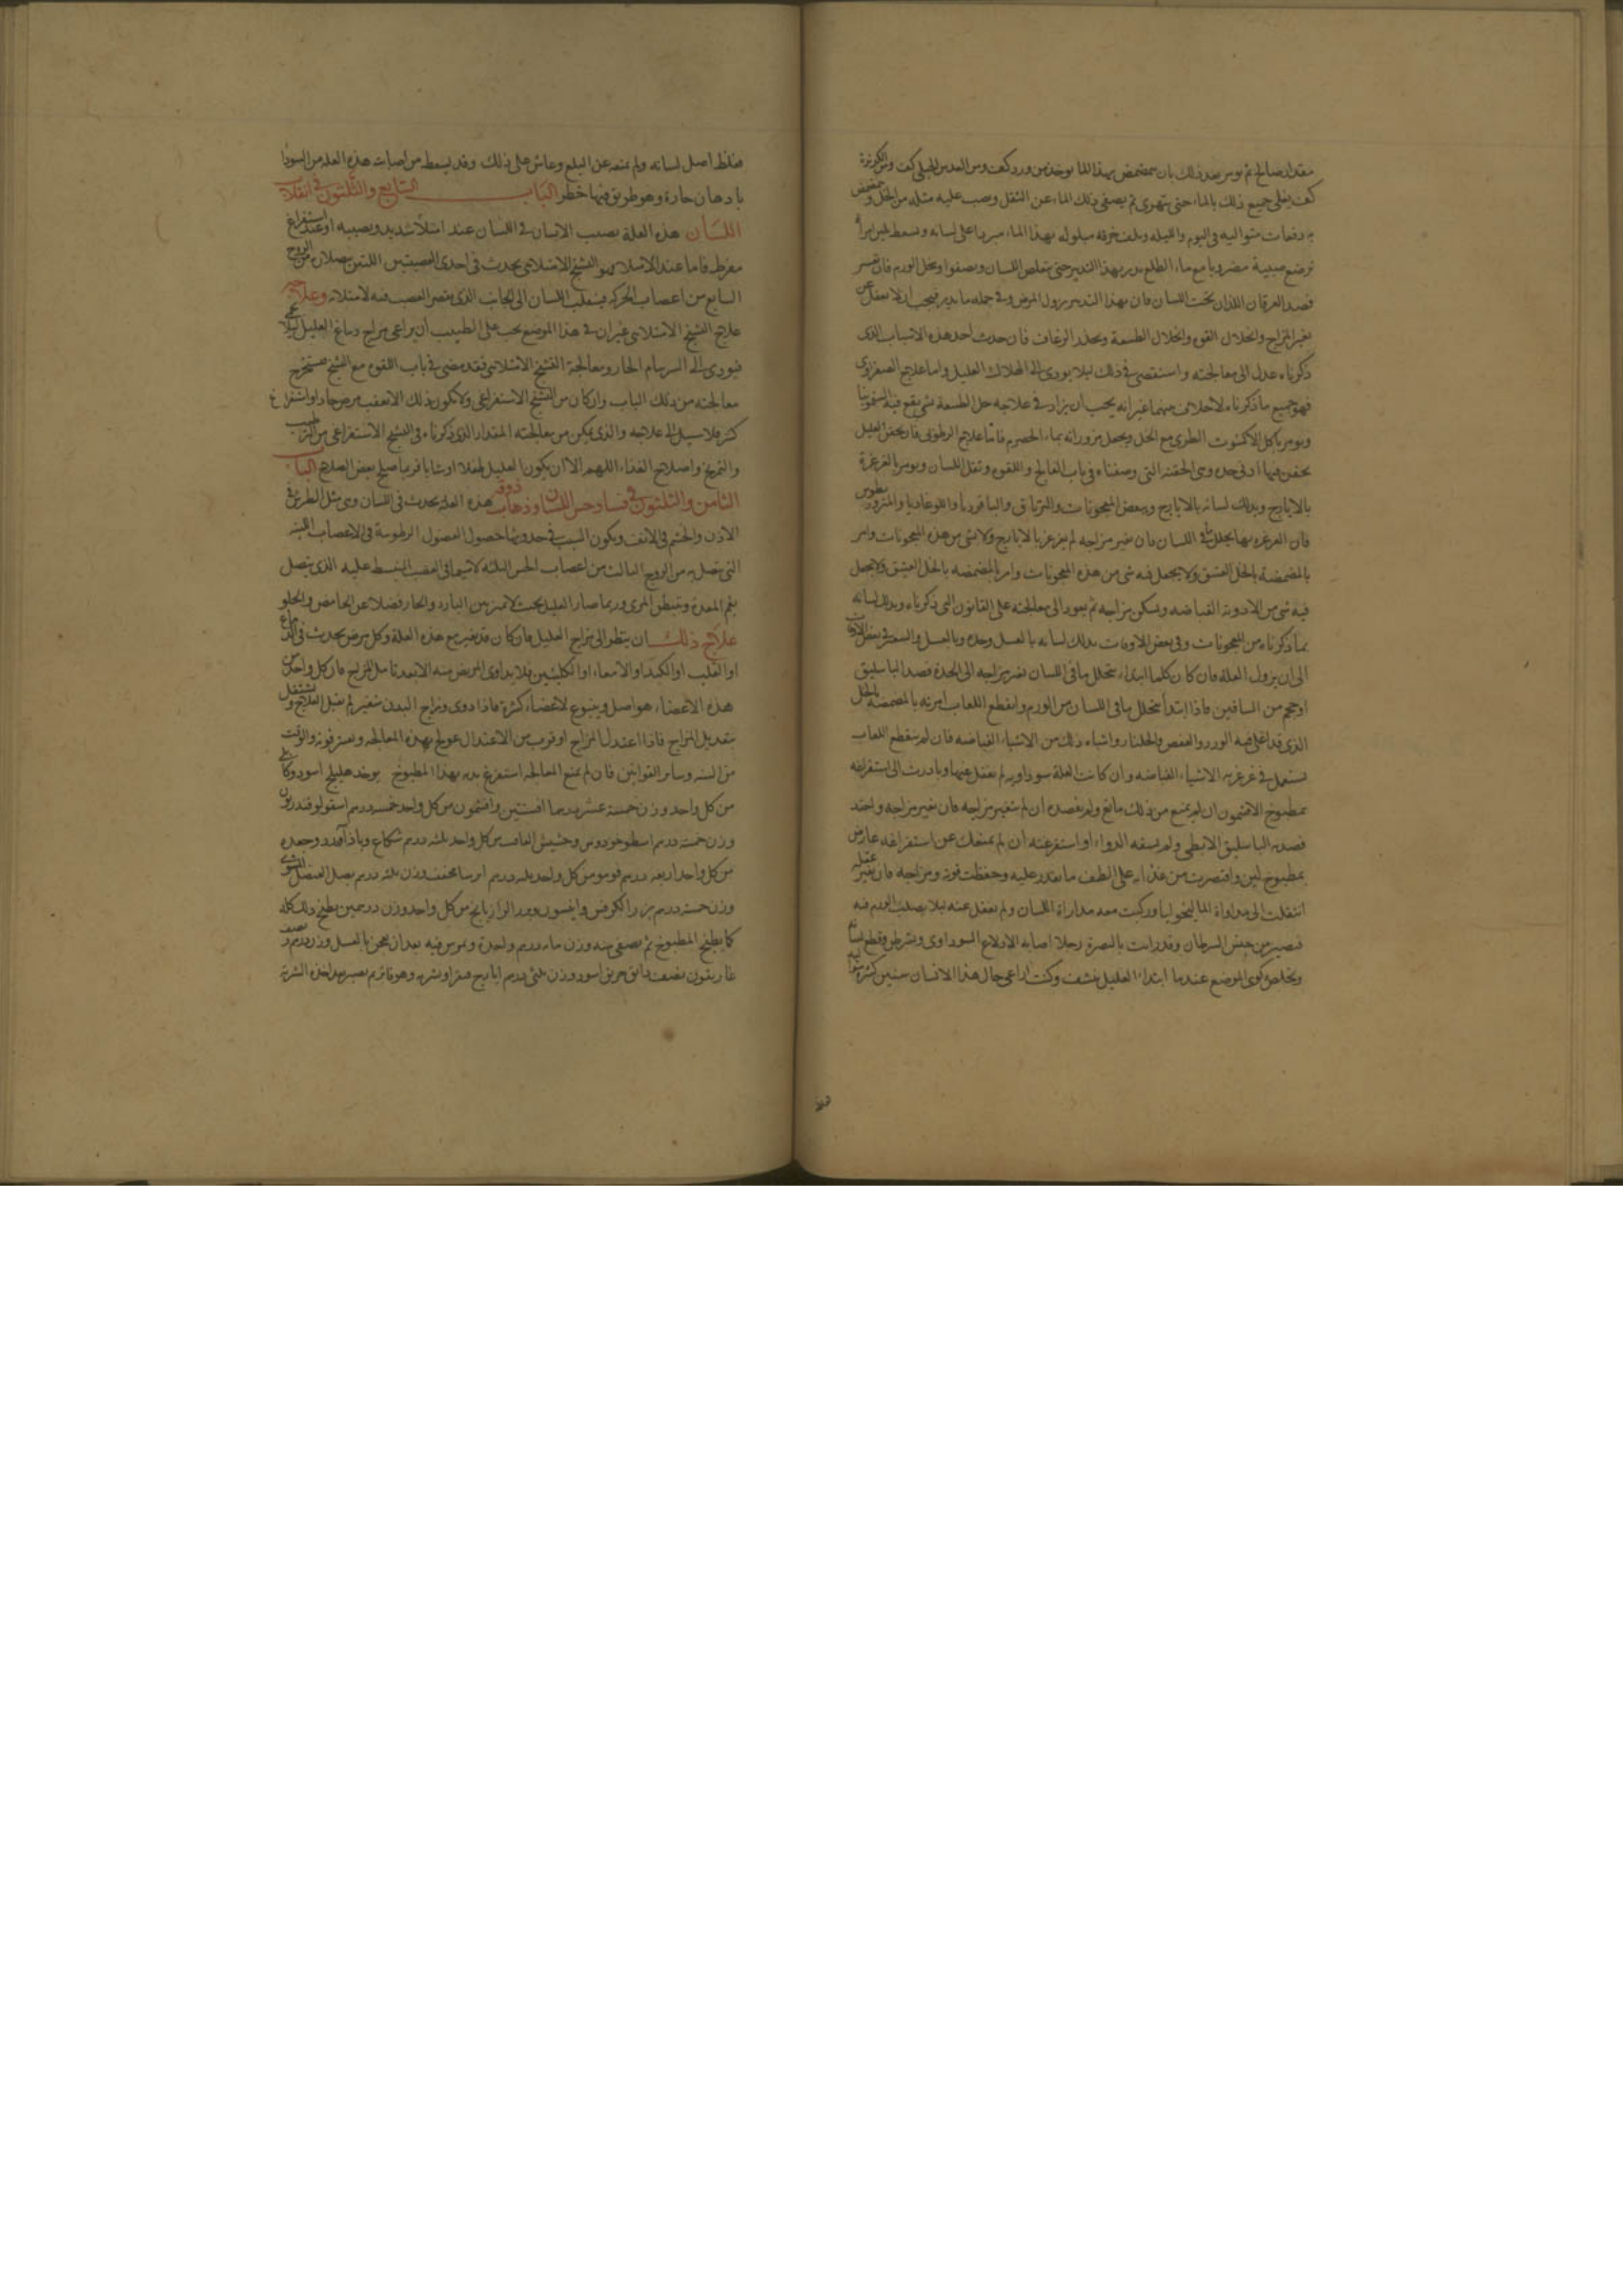 مقدار صالح ثم يومر بعد ذلك بان يتمضمض بهذا الماء يوخذ من ورد كف ومن العدس كف ومن الكزبرة
كف يغلى جميع ذلك بالماء حتى يتهرى ثم يصفى ذلك الماء عن الثفل وصب عليه مثله من الخل
به دفعات متواليه فى اليوم والليله وبلف خرقه مبلوله بهذا الماء مبردا على لسانه ويسعط بلبن امرأة
ترضع صبية مضروبا مع ماء الطلع يدبر بهذا التدبير حتى يتقلص اللسان ويحل الورم فان
فصد العرقان اللذان تحت اللسان فان بهذا التدبير يزول المرض وفى جمله ما يدبر فيجب ان لا يغفل عن
تغير المزاج وانحلال القوه وانحلال الطبيعة ويحذر الرعاف فان حدث احد هذه الاسباب الذى
ذكرناه عدل الى معالجته واستقصى فى ذلك ليلا يودى الى هلاك العليل واما علاج الصفراوى
فهو جميع ما ذكرناه لا خلاف بينهما غير انه يجب ان يزاد فى علاجه حل الطبيعة بشى يقع فيه السقمونيا
ويومر باكل الاكشوث الطرى مع الخل ويجعل مزوراته بماء الحصرم فاما علاج الرطوبى فان يحقن العليل
بحقن فيها ادنى حده وهى الحقنه التى وصفناه فى باب الفالج واللقوه وثقل اللسان ويومر بالغرغرة
بالايارج وبدلك لسانه بالايارج وببعض المعجونات والترياق
فان الغرغره بها يحلل ما فى اللسان فان تغير مزاجه لم يغرغر بالايارج ولا بشى من هذه المعجونات وامر
بالمضمضة بالخل العتيق ولا يجعل فيه شى من هذه المعجونات وامر بالمضمضه بالخل العتيق ولا يجعل
فيه شى من الادوية القباضه ويسكن مزاجه ثم يعود الى معالجته على القانون التى ذكرناه وبدلك لسانه
بما ذكرناه من المعجونات وفى بعض الاوقات يدلك لسانه بالعسل وحده وبالعسل والسعتر فى بعض الاوقات
الى ان يزول العلة فان كان كلما ابتداء يتحلل ما فى اللسان تغير مزاجه الى الحدة فصد الباسليق
او حجم من الساقين فاذا ابتدأ يتحلل ما فى اللسان من الورم وانقطع اللعاب امرته بالمضمضه بالخل
الذى قد اغلى فيه الورد والعفص والجلنار واشباه ذلك من الاشياء القباضه فان لم ينقطع اللعاب
تستعمل فى غرغرته الاشياء القباضه وان كانت العلة سوداويه لم تغفل عنها وبادرت الى استفراغه
بمطبوخ الافتيمون ان لم يمنع من ذلك مانع ولم يفصده ان لم يتغير مزاجه فان تغير مزاجه واحتد
فصدته الباسليق الابطى ولم يسقه الدواء او استفرغته ان لم يمنعك عن استفراغه عارض
بمطبوخ لين واقتصرت من غذائه على الطف ما تقدر عليه وحفظت قوته ومزاجه فان تغير عقله
انتقلت الى مداواة الماليخوليا وركبت معه مداراة اللسان ولم تغفل عنه ليلا يصلب الورم فيه
فيصير من جنس السرطان وقد رايت بالبصرة رجلا اصابه الاولاع السوداوى وشرطن وقطع لسانه
وتخلص كوى الموضع عند ما ابتداء العليل ينشف وكنت اراعى حال هذا الانسان سنين كثيره
فغلظ اصل لسانه ولم يمنعه عن البلع وعاش على ذلك وقد يسعط من اصابته هذه العله من السودا
بادهان حارة وهو طريق فيها خطر الباب السابع والثلثون فى انقلاب
اللسان هذه العلة يصيب الانسان فى اللسان عند امتلا شديد ويصيبه او عند استفراغ
مفرط فاما عند الامتلا فهو التشنج الامتلائى يحدث فى احدى العصبتين اللتين يتصلان من الزوج
السابع من اعصاب الحركه فينقلب اللسان الى الجانب الذى يقصر العصب فيه لامتلائه وعلاجه
علاج التشنج الامتلائى غير ان فى هذا الموضع يجب على الطبيب ان يراعى مزاج دماغ العليل ليلا
فيودى الى السرسام الحار ومعالجة التشنج الامتلائى فقد مضى فى باب اللقوه مع التشنج فتستخرج
معالجته من ذلك الباب وان كان من التشنج الاستفراغى ولا يكون ذلك الا بعقب مرض حاد او استفراغ
كثير فلا سبيل الى علاجه والذى يمكن من معالجته المقدار الذى ذكرناه فى التشنج الاستفراغى من الترطيب
والتمريخ واصلاح الغذاء اللهم الا ان يكون العليل طفلا او شابا فربما صلح بعض الصلاح الباب
الثامن والثلثون فى فساد حس اللسان وذهاب ذوقه هذه العله يحدث فى اللسان وهى مثل الطرش فى
الاذن والخشم فى الانف ويكون السبب فى حدوثها حصول الفضول الرطوبية فى الاعصاب اللينه
التى يتصل به من الزوج الثالث من اعصاب الحس اللينه لا سيما فى العصب المنبسط عليه الذى يتصل
بفم المعدة وتبطن المرى وربما صار العليل بحيث لا يميز بين البارد والحار فضلا عن الحامض والحلو
علاج ذلك ان ينظر الى مزاج العليل فان كان قد تغير مع هذه العلة وكل مرض يحدث فى الدماغ
او القلب او الكبد او الامعاء او الكليتين فلا يداوى المريض منه الا بعد تامل المزاج فان كل واحد من
هذه الاعضاء هو اصل وينبوع لاعضاء كثيرة فاذا دوى ومزاج البدن متغير لم يقبل العلاج وتشتغل
بتعديل المزاج فاذا اعتدل المزاج او قرب من الاعتدال عولج بهذه المعالجه وتعتبر قوته والوقت
من السنه وساير القوانين فان لم يمنع المعالجه استفرغ بدنه بهذا المطبوخ يوخذ هليلج اسود وكابلى
من كل واحد وزن خمسة عشر درهما افسنتين وافتيمون من كل واحد خمسه درهم اسقولوقندريون
وزن خمسه درهم اسطوخودوس وحشيش الغافت من كل واحد ثلثه درهم شكاع وباذآورد وجعده
من كل واحد اربعه درهم فو ومو من كل واحد ثلثه درهم ايرسا مجفف وزن ثلثه درهم بصل العنصل المشوى
وزن خمسه درهم بزر الكرفس وانيسون وبزر الرازيانج من كل واحد وزن درهمين يطبخ ذلك كله
كما يطبخ المطبوخ ثم يصفى منه وزن مائه درهم واحدة ويمرس فيه بعد ان يعجن بالعسل وزن درهم ونصف
غاريقون نصف دانق خربق اسود وزن ثلثى درهم ايارج فيقرا ويشربه وهو فاتر ثم يصبر بعد اخذه الشربة